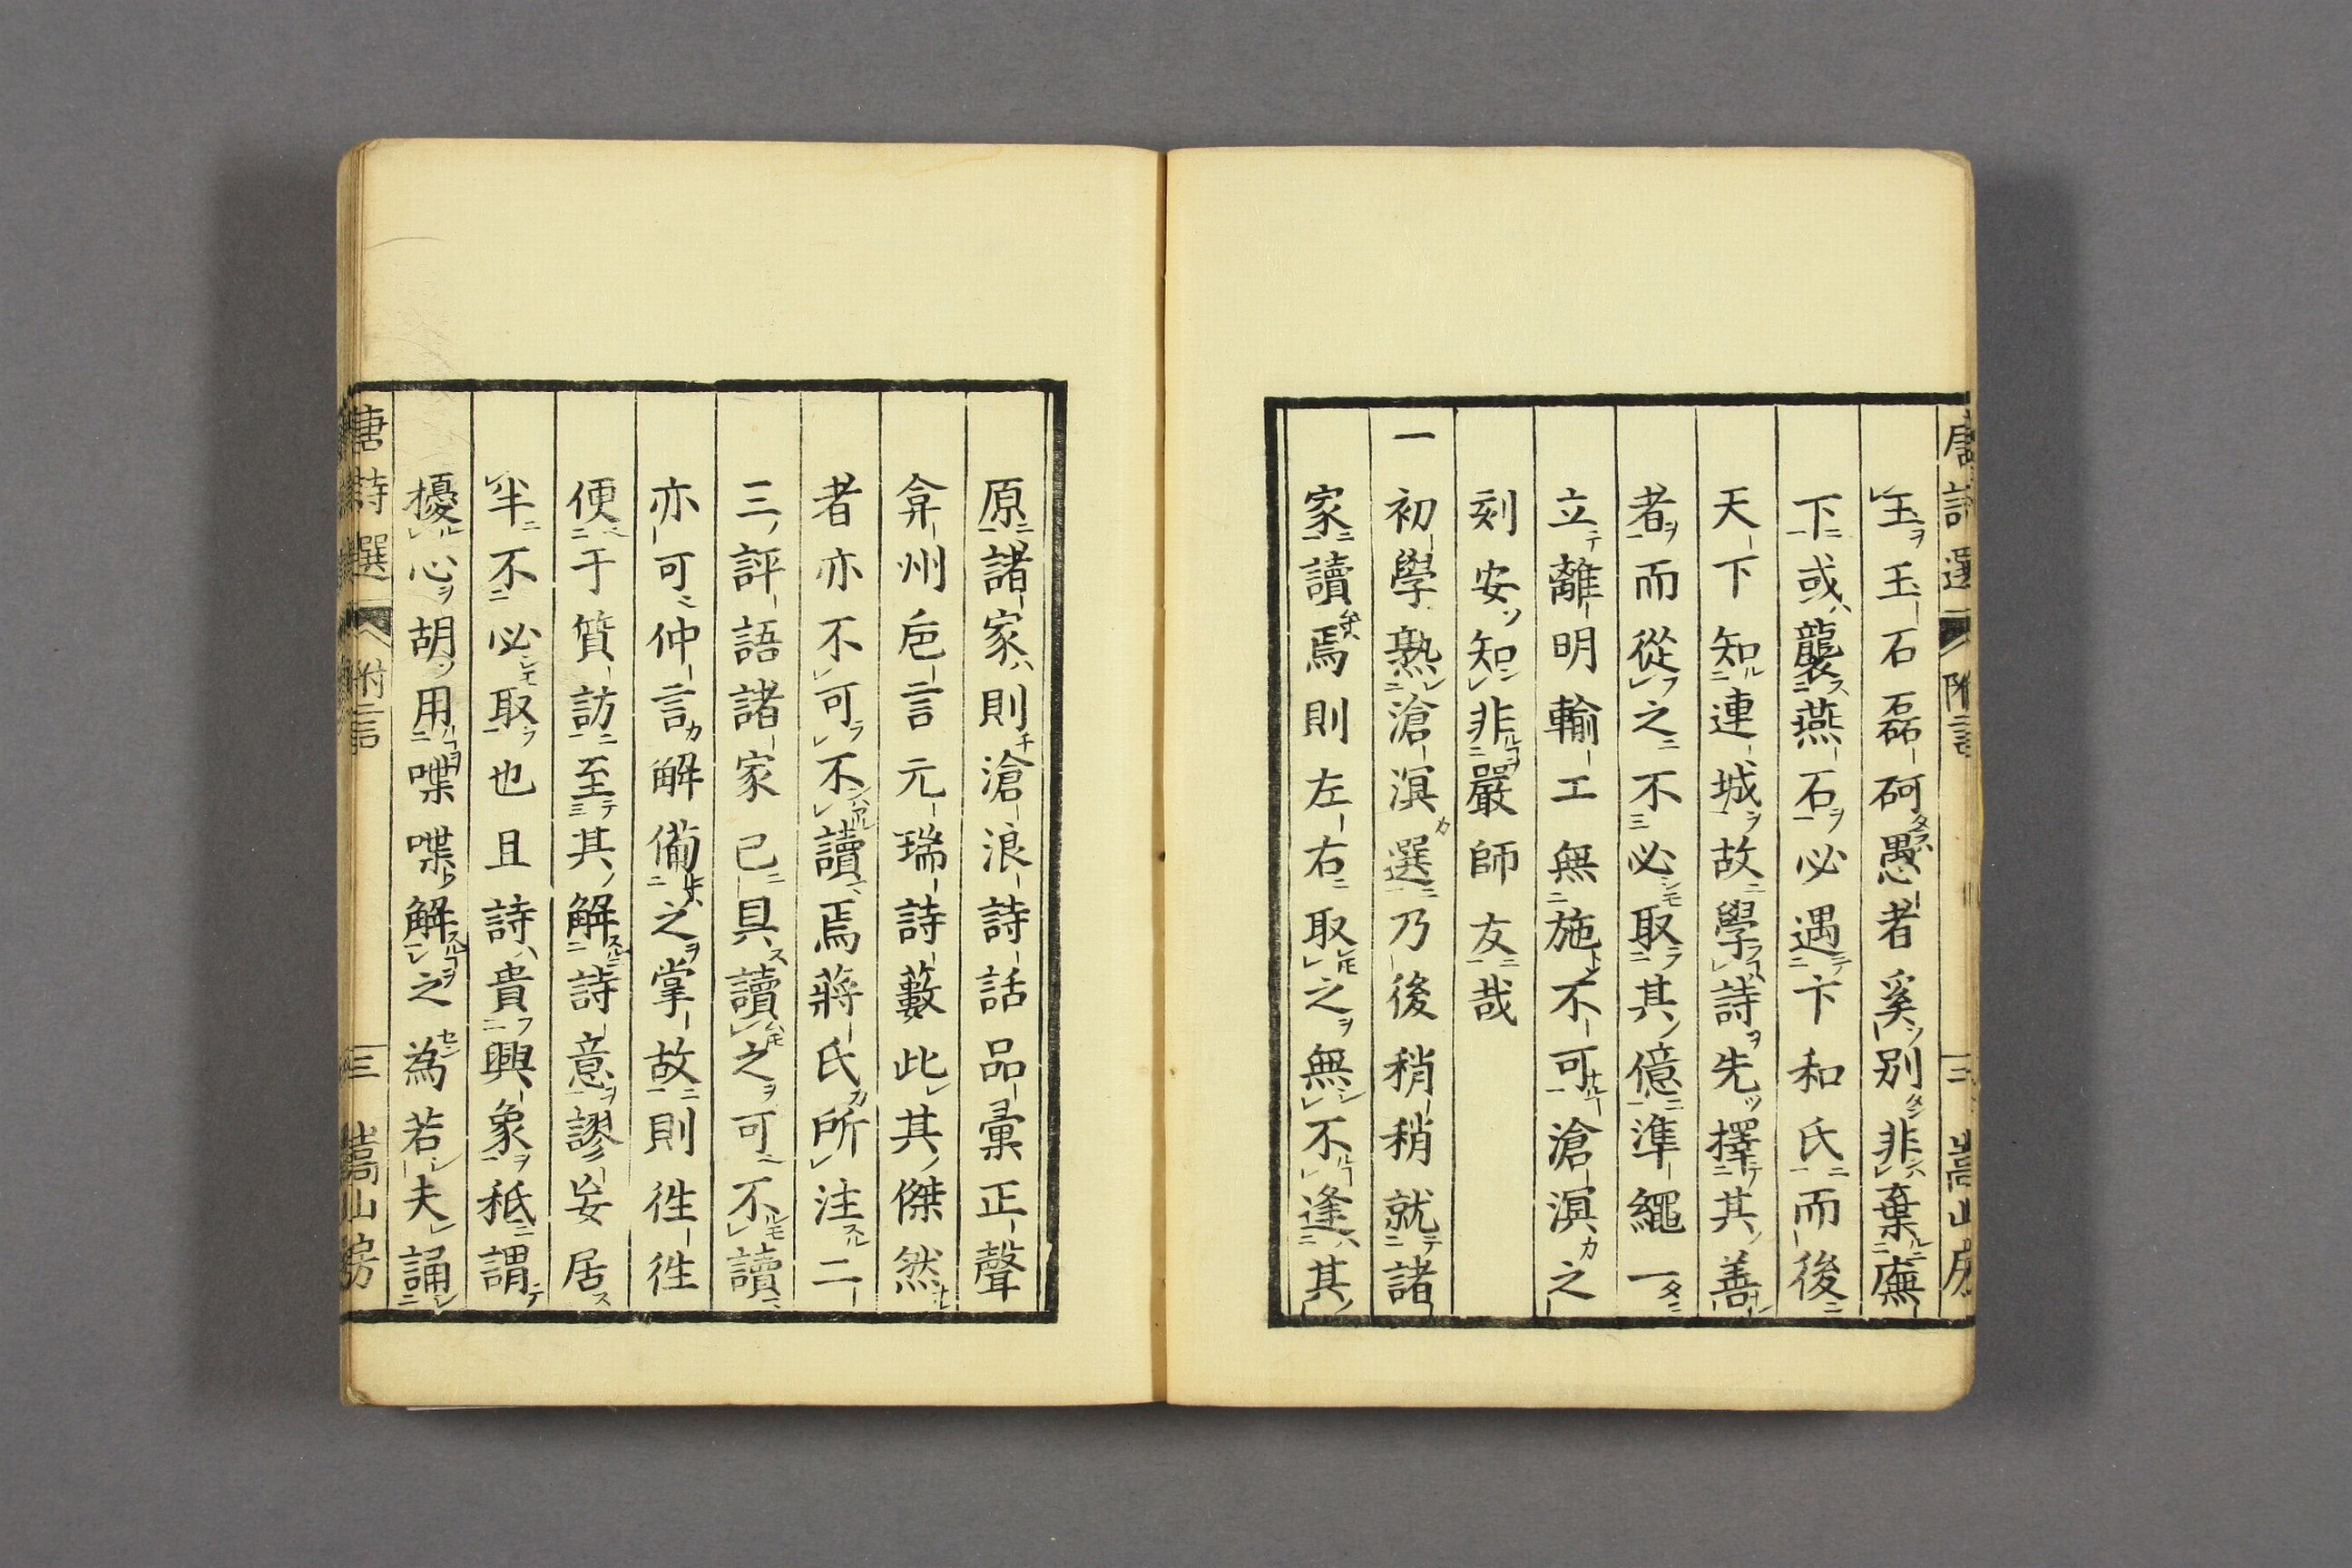 玉玉石磊砢愚者奚別非棄廡
下或襲燕石必遇卞和氏而後
天下知連城故學詩先擇其善
者而從之不必取其億準繩一
立離明輸工無施不可滄溟之
刻安知非嚴師友哉
一初學熟滄溟選乃後稍稍就諸
家讀焉則左右取之無不逢其
原諸家則滄浪詩話品彙正聲
弇州巵言元瑞詩藪此其傑然
者亦不可不讀焉蔣氏所注二
三評語諸家已具讀之可不讀
亦可仲言解備之掌故則徃徃
便于質訪至其解詩意謬妄居
半不必取也且詩貴興象秪謂
擾心胡用喋喋解之為若夫誦
唐詩選 附言 三 嵩山房